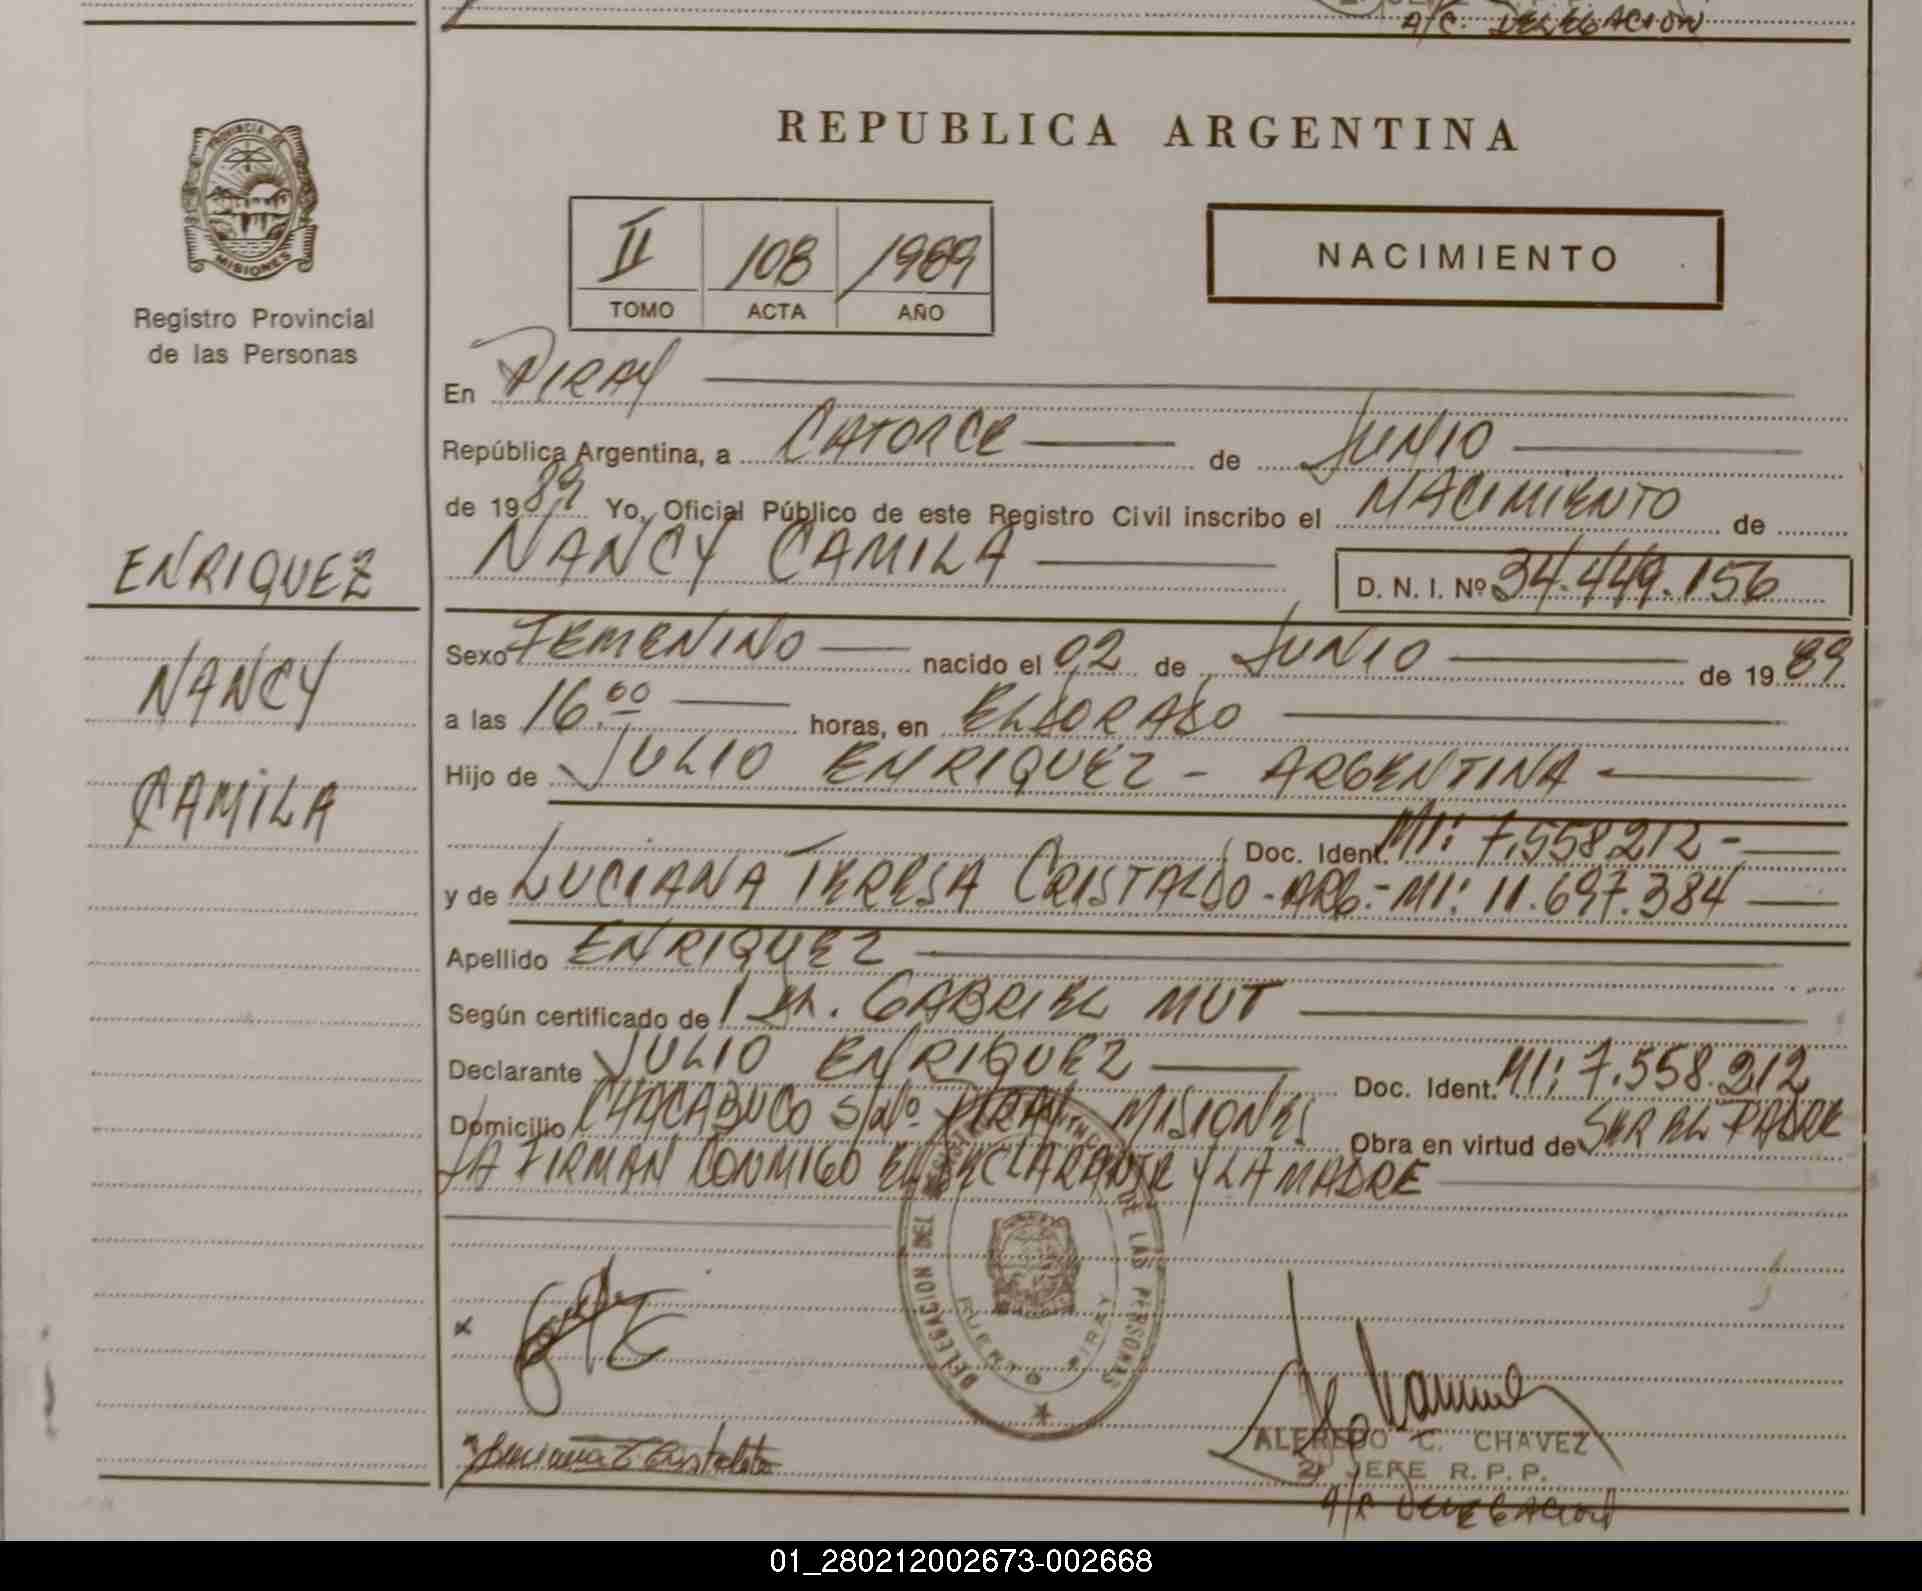 A/C. DELEGACION
PROVINCIA DE
MISIONES
Registro Provincial
de las Personas
ENRIQUEZ
NANCY
CAMILA
REPUBLICA ARGENTINA
II 108 1989
TOMO ACTA AÑO
NACIMIENTO
En PIRAY
República Argentina, a CATORCE de JUNIO
de 1989 Yo, Oficial Público de este Registro Civil inscribo el NACIMIENTO de
NANCY CAMILA D. N. I. Nº 34.449.156
Sexo FEMENINO nacido el 02 de JUNIO de 1989
a las 16.00 horas, en ELDORADO
Hijo de JULIO ENRIQUEZ - ARGENTINA -
Doc. Ident. MI: 7.558.212 -
y de LUCIANA TERESA CRISTALDO - ARG. - MI: 11.697.384
Apellido ENRIQUEZ
Según certificado de / DR. GABRIEL MUT
Declarante JULIO ENRIQUEZ Doc. Ident. MI: 7.558.212
Domicilio CHACABUCO S/Nº PIRAY MISIONES Obra en virtud de SER EL PADRE
LA FIRMAN CONMIGO EL DECLARANTE Y LA MADRE
DELEGACION DEL DE LAS PERSONAS
PUERTO PIRAY
Luciana T Cristaldo
ALFREDO C. CHAVEZ
2º JEFE R.P.P.
A/C DELEGACION
01_280212002673-002668